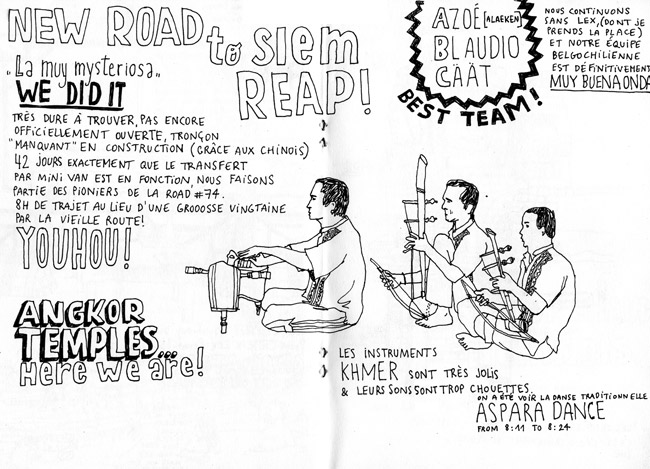 NEW ROAD
to SIEM
REAP!
"La muy mysteriosa"
WE DID IT
TRÈS DURE À TROUVER, PAS ENCORE
OFFICIELLEMENT OUVERTE, TRONÇON
"MANQUANT" EN CONSTRUCTION (GRÂCE AUX CHINOIS)
42 JOURS EXACTEMENT QUE LE TRANSFERT
PAR MINI VAN EST EN FONCTION, NOUS FAISONS
PARTIE DES PIONIERS DE LA ROAD #74.
8H DE TRAJET AU LIEU D'UNE GROOOSSE VINGTAINE
PAR LA VIEILLE ROUTE!
YOUHOU!
ANGKOR
TEMPLES...
Here we are!
AZOÉ [ALAEKEN]
BLAUDIO
CÄÄT
BEST TEAM!
NOUS CONTINUONS
SANS LEX, (DONT JE
PRENDS LA PLACE)
ET NOTRE ÉQUIPE
BELGOCHILIENNE
EST DÉFINITIVEMENT
MUY BUENA ONDA
LES INSTRUMENTS
KHMER SONT TRÈS JOLIS
& LEURS SONS SONT TROP CHOUETTES.
ON A ÉTÉ VOIR LA DANSE TRADITIONNELLE
ASPARA DANCE
FROM 8:11 TO 8:24